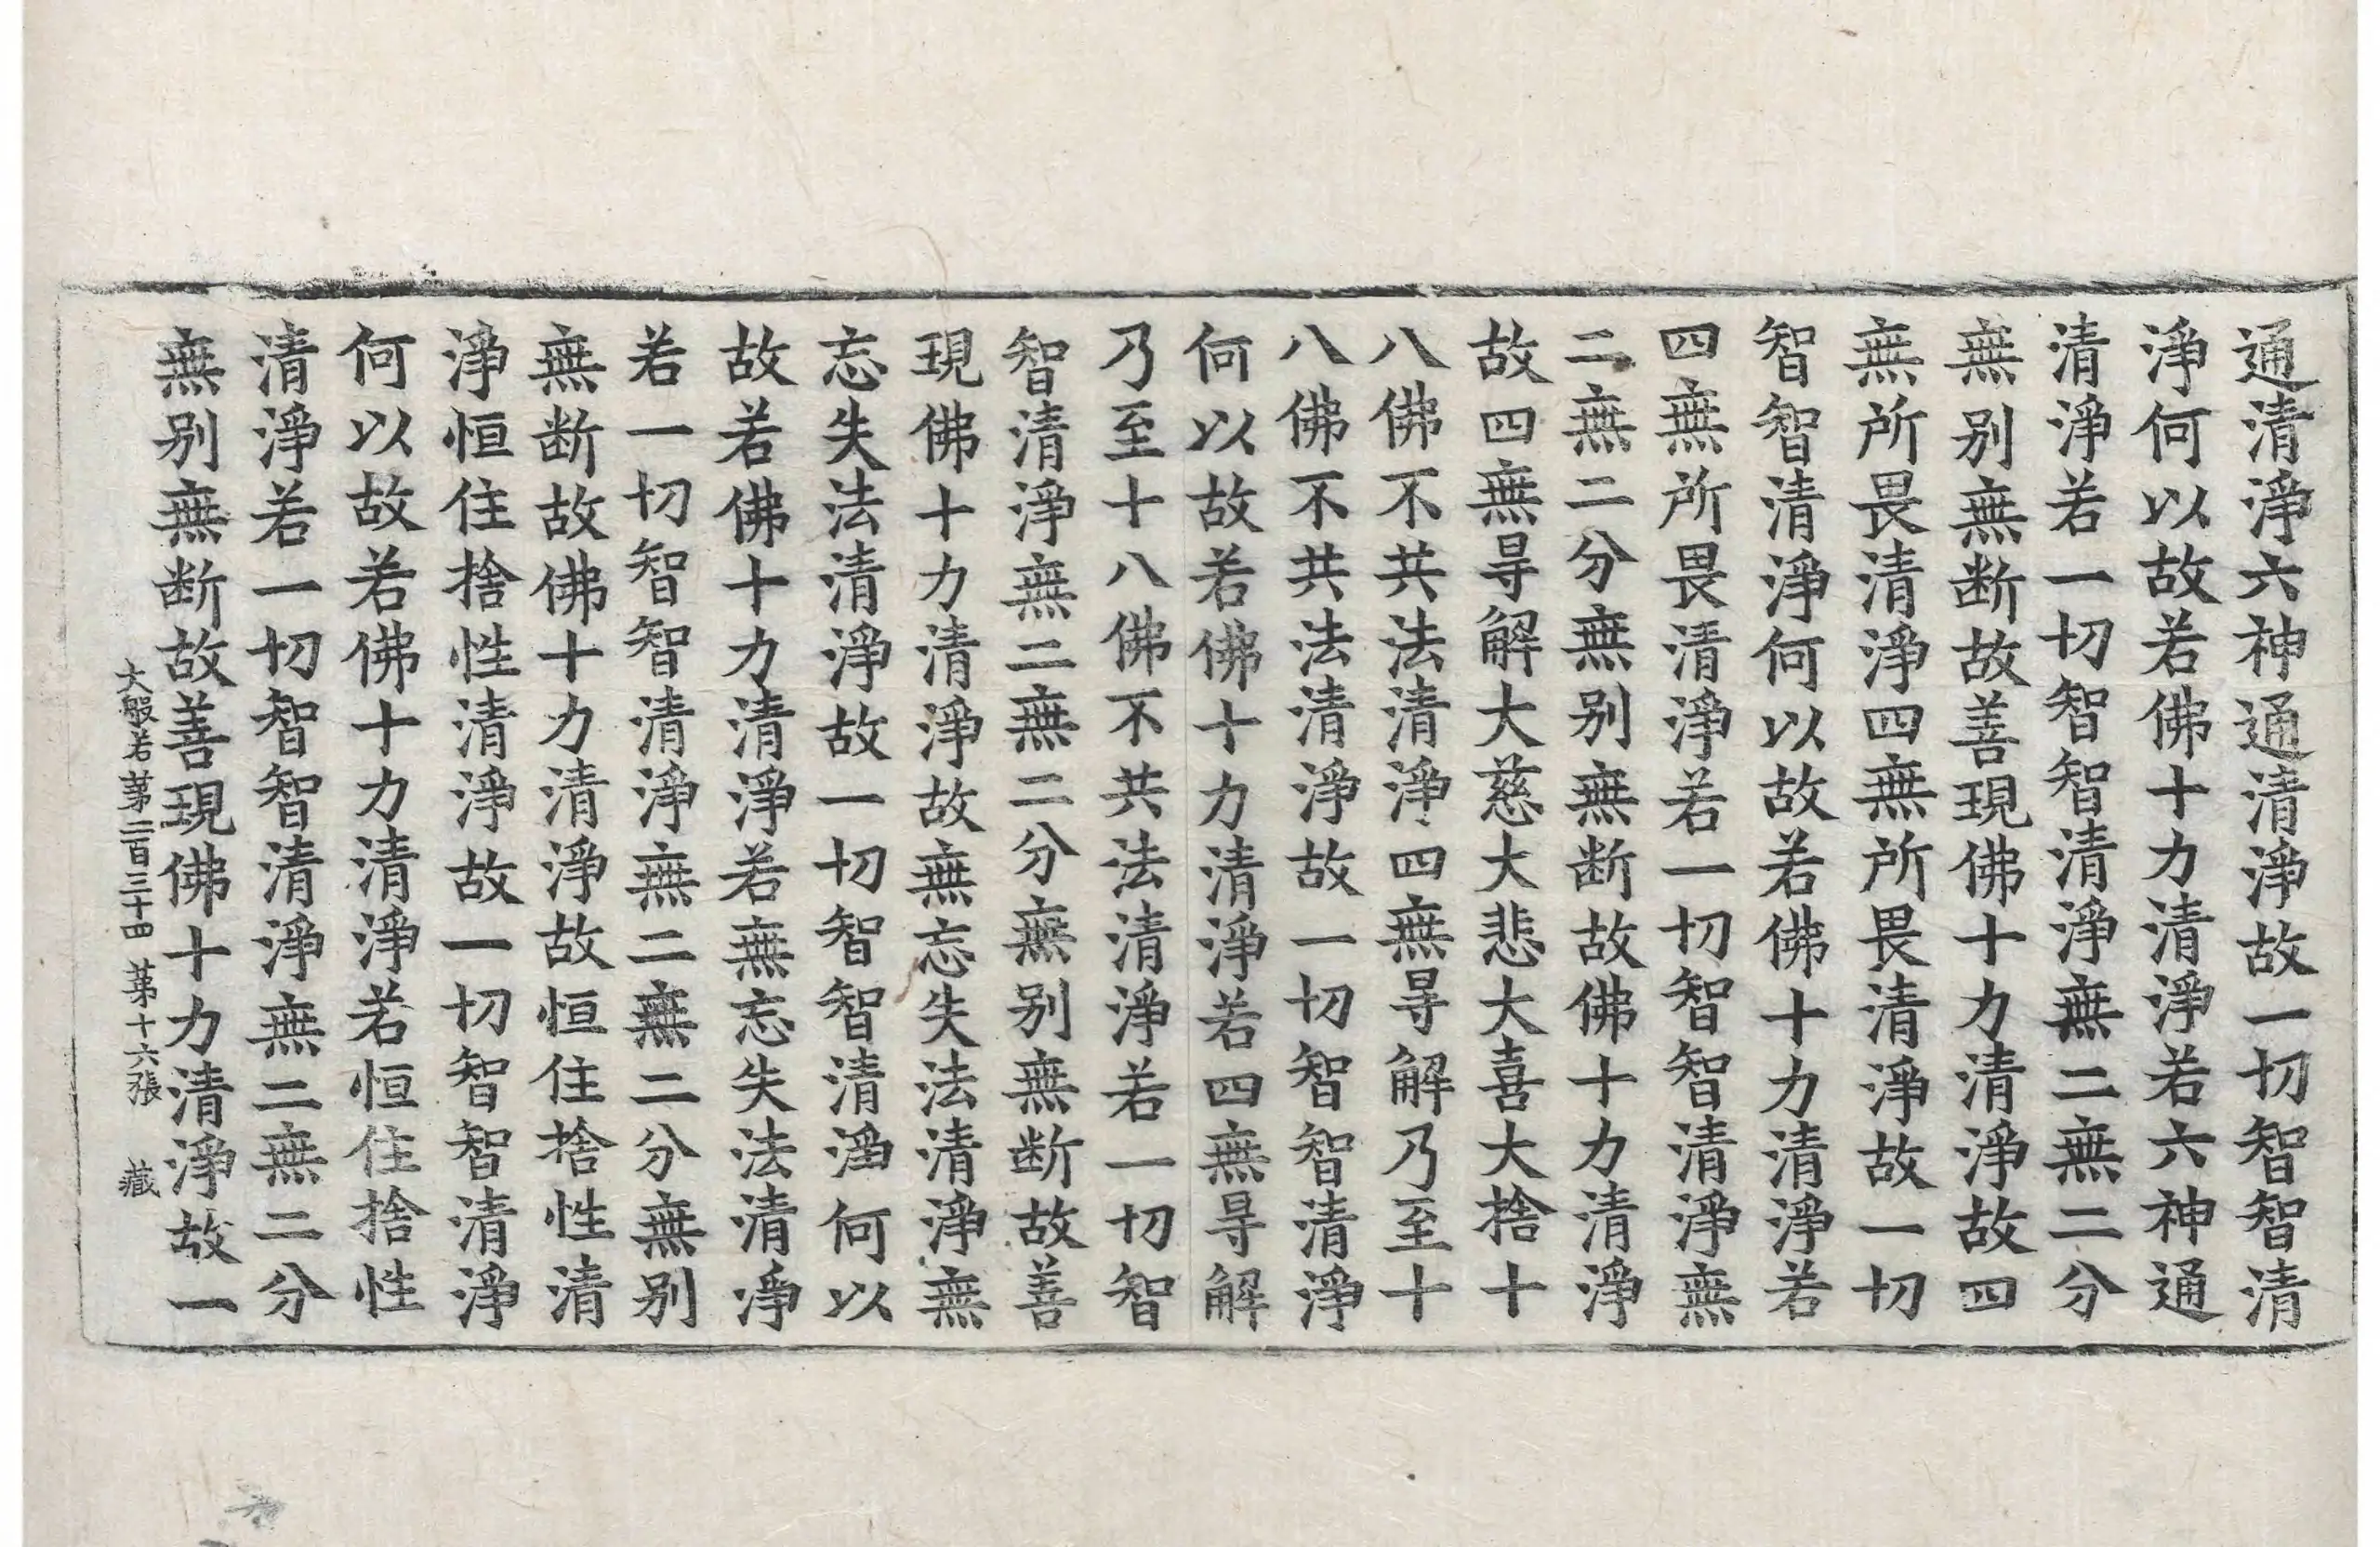 通清淨六神通清淨故一切智智清
淨何以故若佛十力清淨若六神通
清淨若一切智智清淨無二無二分
無别無断故善現佛十力清淨故四
無所畏清淨四無所畏清淨故一切
智智清淨何以故若佛十力清淨若
四無所畏清淨若一切智智清淨無
二無二分無别無断故佛十力清淨
故四無㝵解大慈大悲大喜大捨十
八佛不共法清淨四無㝵解乃至十
八佛不共法清淨故一切智智清淨
何以故若佛十力清淨若四無㝵解
乃至十八佛不共法清淨若一切智
智清淨無二無二分無别無断故善
現佛十力清淨故無忘失法清淨無
忘失法清淨故一切智智清淨何以
故若佛十力清淨若無忘失法清淨
若一切智智清淨無二無二分無别
無断故佛十力清淨故恒住捨性清
淨恒住捨性清淨故一切智智清淨
何以故若佛十力清淨若恒住捨性
清淨若一切智智清淨無二無二分
無别無断故善現佛十力清淨故一
大般若苐二百三十四 苐十六張 藏